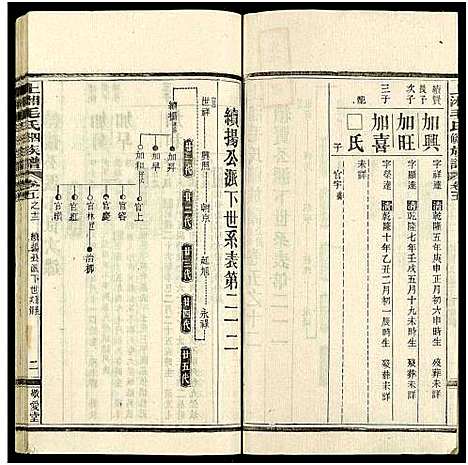 續賢長子
加興
字祥達 清乾隆五年庚申正月初六申時生 歿葬未詳
次子
加旺
字顯達 清乾隆七年壬戌五月十九未時生 歿葬未詳
三子
加喜
字榮達 清乾隆十年乙丑二月初一辰時生 歿葬未詳
配
□氏
未詳
子
官宇
續揚公派下世系表第二一二
廿一代
廿二代
廿三代
廿四代
廿五代
世祥
興照
朝京
延旭
永祿
續揚
加昇
加早
加和
官上
官容
官慶
官林
治柳
官紅
官模
上湘毛氏四修族譜
卷五之十二
續揚公派下世系表
二一
敬愛堂